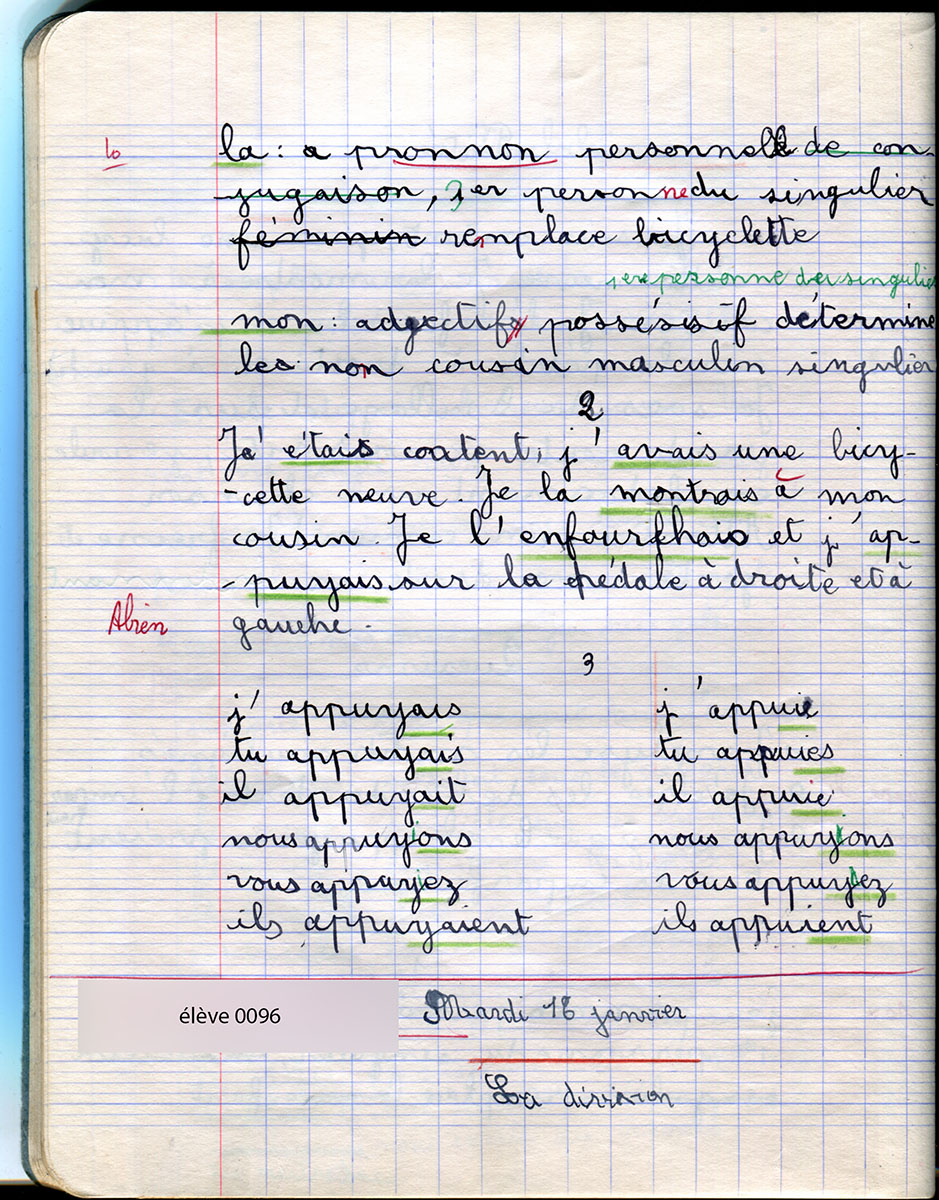 lo
la : a pronnon personnell de con-
jugaison, 3er personne du singulier
féminin remplace bicyclette
1ere personne du singulier
mon : adjectif possésisif détermine
les nom cousin masculin singulier
2
J'étais content, j'avais une bicy-
-cette neuve. Je la montrais à mon
cousin. Je l'enfourfhais et j'ap-
-puyais sur la pédale à droite et à
gauche.
Abien
3
j'appuyais j'appuie
tu appuyais tu appuies
il appuyait il appuie
nous appuyions nous appuyons
vous appuyiez vous appuyez
ils appuyaient ils appuient
élève 0096
Mardi 16 janvier
La division